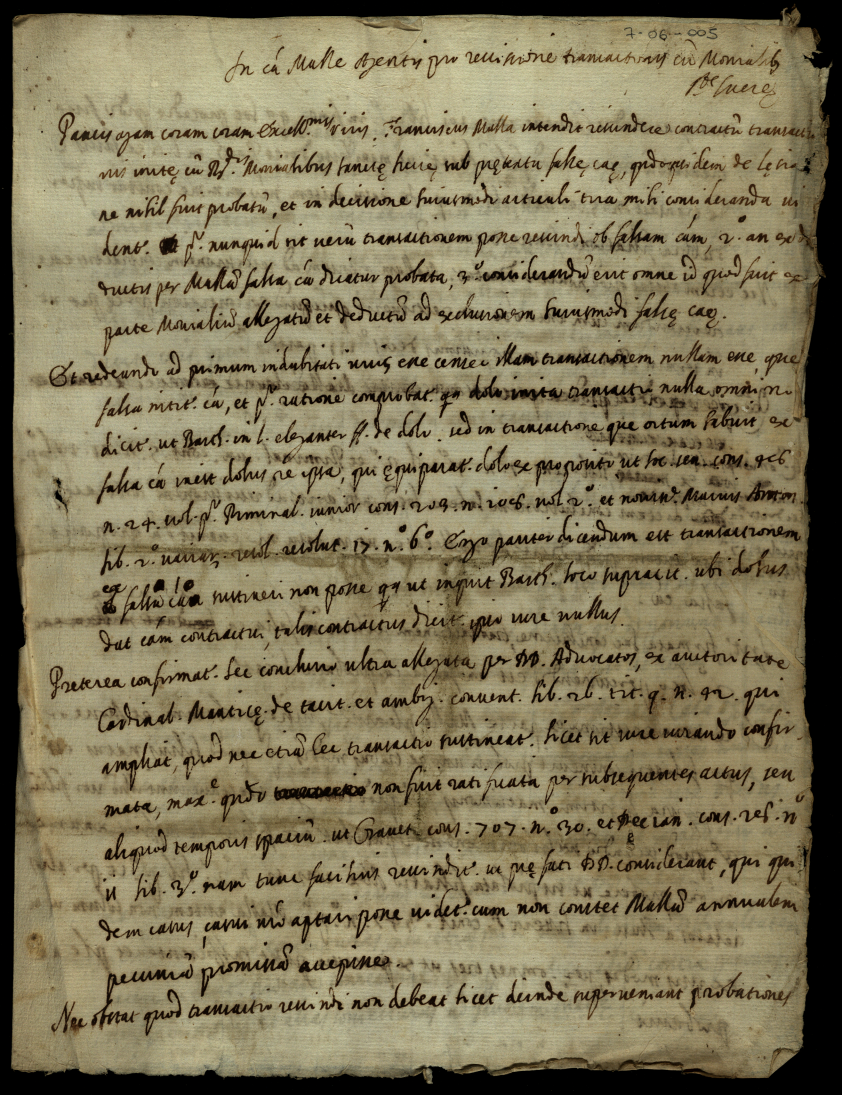 7-06-005
In cá Malle Agentis pro recissione transactionis cū Monialib
Stę Lucię
Paucis agam coram coram Excell.mis viris. Franciscus Malla intendit rescindere contractū transactio
nis initę cū Rd.is Monialibus sanctę Lucię sub prętextu falsę caę, qñdoquidem de lęsio
ne nihil fuit probatū, et in decisione huiusmodi articuli tria mihi consideranda vi
dent.r p.o nunquid sit verū transactionem posse rescindi ob falsam cám, 2.o an ex de
ductis per Mallā falsa cá dicatur probata, 3.o considerandū erit omne id quod fuit ex
parte Monialiū allegatū et deductū ad exclusionem huiusmodi falsę caę.
Et redeundo ad primum indubitati iuris esse censeo illam transactionem nullam esse, que
falsa nitit.r cá, et p.o ratione comprobat.r qa dolo inita transactio nulla omnino
dicit.r ut Barth. in l. eleganter ff. de dolo. sed in transactione que ortum habuit ex
falsa cá inest dolus re ipsa, qui ęquiparat.r dolo ex proposito ut soc. sen. cons. 
n. 24. vol. p.o Riminal. iunior cons. 203. n. 106. vol. 2.o et noviss.e Marius Anton.
lib. 2.o variar. resol. resolut. 17. n.o 6.o Ergo pariter dicendum est transactionem
ex falsa cáa sustineri non posse qa ut inquit Barth. loco supracit. ubi dolus
dat cám contractui, talis contractus dicit.r ipso iure nullus.
Preterea confirmat.r hec conclusio ultra allegata per DD. Advocatos, ex auctoritate
Cardinal. Manticę. de tacit. et ambig. convent. lib. 26. tit. 9. n. 42. qui
ampliat, quod nec etiā hec transactio sustineat.r licet sit iure iurando confir
mata, max.e qñdo non fuit ratificata per subsequentes actus, seu
aliquod temporis spaciū. ut Gravet. cons. 707. n.o 30. et Decian. cons. n.o
ii lib. 3.o nam tunc facilius rescindit.r ut prę fati DD. considerant, qui qui
dem casus, casui nrō aptari posse videt.r cum non constet Mallā annualem
pecuniā promissā accepisse.
Nec obstat quod transactio rescindi non debeat licet deinde superveniant probationes